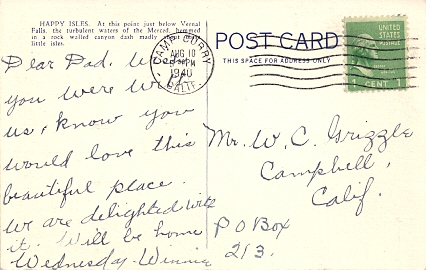 HAPPY ISLES. At this point just below Vernal
Falls, the turbulent waters of the Merced, hemmed
in a rock walled canyon dash madly
little isles.
Dear Dad. Wish
you were with
us, know you
would love this
beautiful place.
We are delighted with
it. Will be home
Wednesday - Winnie
CAMP CURRY
AUG 10
PM
1940
CALIF.
POST CARD
THIS SPACE FOR ADDRESS ONLY
UNITED
STATES
POSTAGE
1 CENT
Mr. W. C. Grizzle
Campbell,
Calif.
P O Box
213.